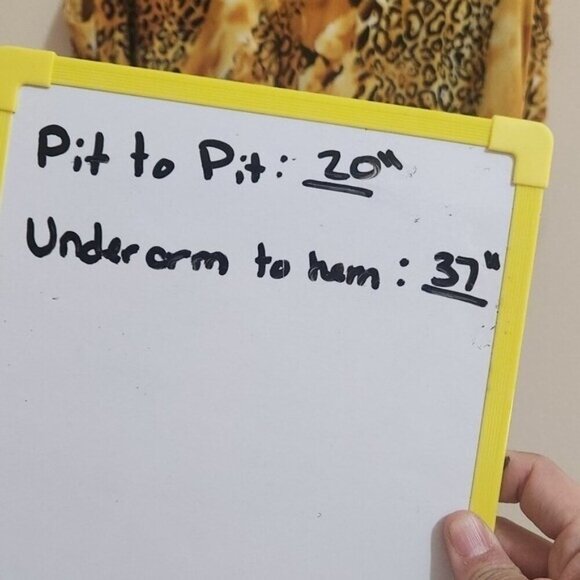 Pit to Pit: 20"
Underarm to hem: 37"